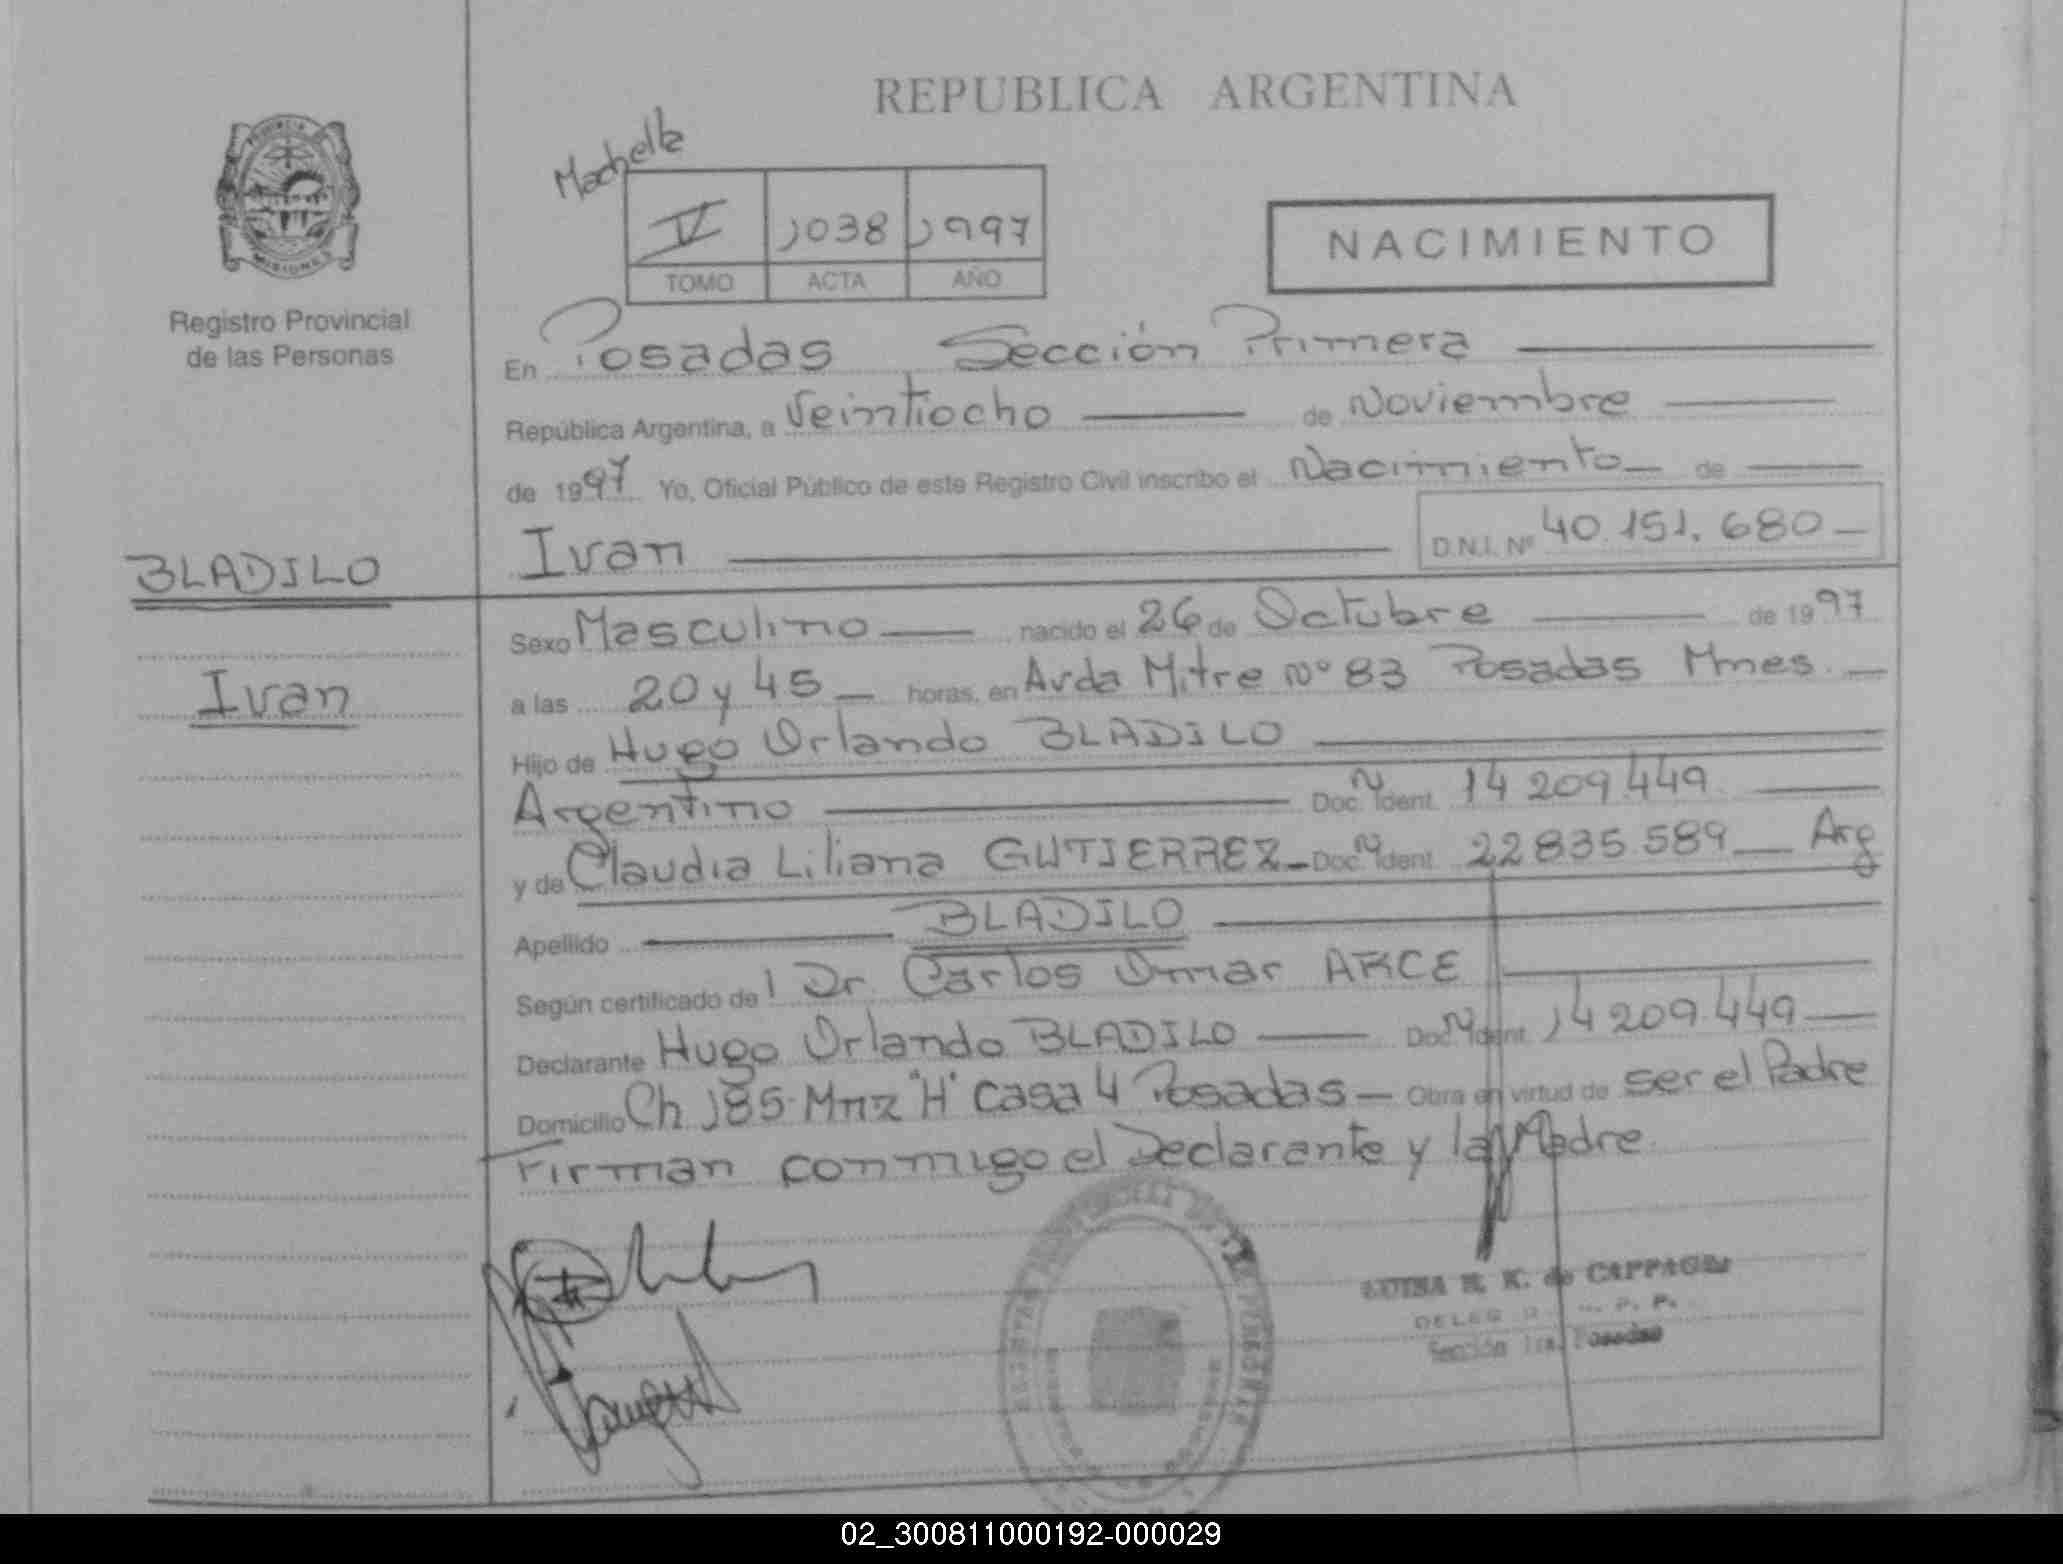 REPUBLICA ARGENTINA
PROVINCIA
MISIONES
Registro Provincial
de las Personas
V 1038 1997
TOMO ACTA AÑO
NACIMIENTO
En Posadas Sección Primera
República Argentina, a Veintiocho de Noviembre
de 1997 Yo, Oficial Público de este Registro Civil inscribo el Nacimiento de
Ivan D.N.I. Nº 40.151.680
BLADILO
Ivan
Sexo Masculino nacido el 26 de Octubre de 1997
a las 20 y 45 horas, en Avda Mitre Nº 83 Posadas Mnes.
Hijo de Hugo Orlando BLADILO
Argentino Doc. N Ident. 14 209.449
y de Claudia Liliana GUTIERREZ Doc. N Ident. 22835.589 Arg
Apellido BLADILO
Según certificado de l Dr. Carlos Omar ARCE
Declarante Hugo Orlando BLADILO Doc. N Ident. 14 209.449
Domicilio Ch. 185-Mnz "H" Casa 4 Posadas Obra en virtud de ser el Padre
Firman conmigo el Declarante y la Madre
de CAPPAGLI
Sección 1ra. Posadas
02_300811000192-000029